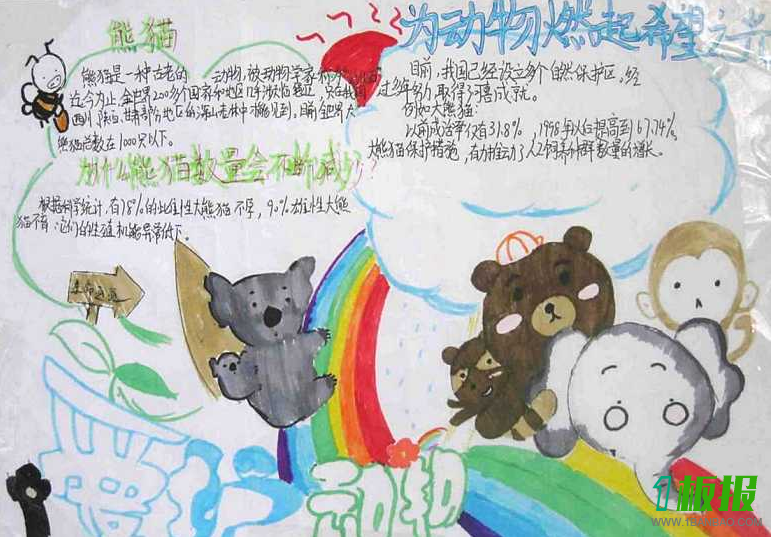 熊猫
熊猫是一种古老的 动物,被动物学家称为
迄今为止,全世界200多个国家和地区几乎濒临绝迹,只在我国
四川、陕西、甘肃部分地区的深山老林中才能见到,目前全世界大
熊猫总数在1000只以下。
为什么熊猫数量会不断减少?
根据科学统计,有78%的雌性大熊猫不孕,90%雄性大熊
猫不育,它们的生殖机能异常低下。
为动物燃起希望之
目前,我国已经设立多个自然保护区,经
过多年努力,取得了可喜成就。
例如大熊猫:
以前成活率仅有31.8%,1998年以后提高到67.74%,
大熊猫保护措施,有力推动了人工饲养种群数量的增长。
动物
板报